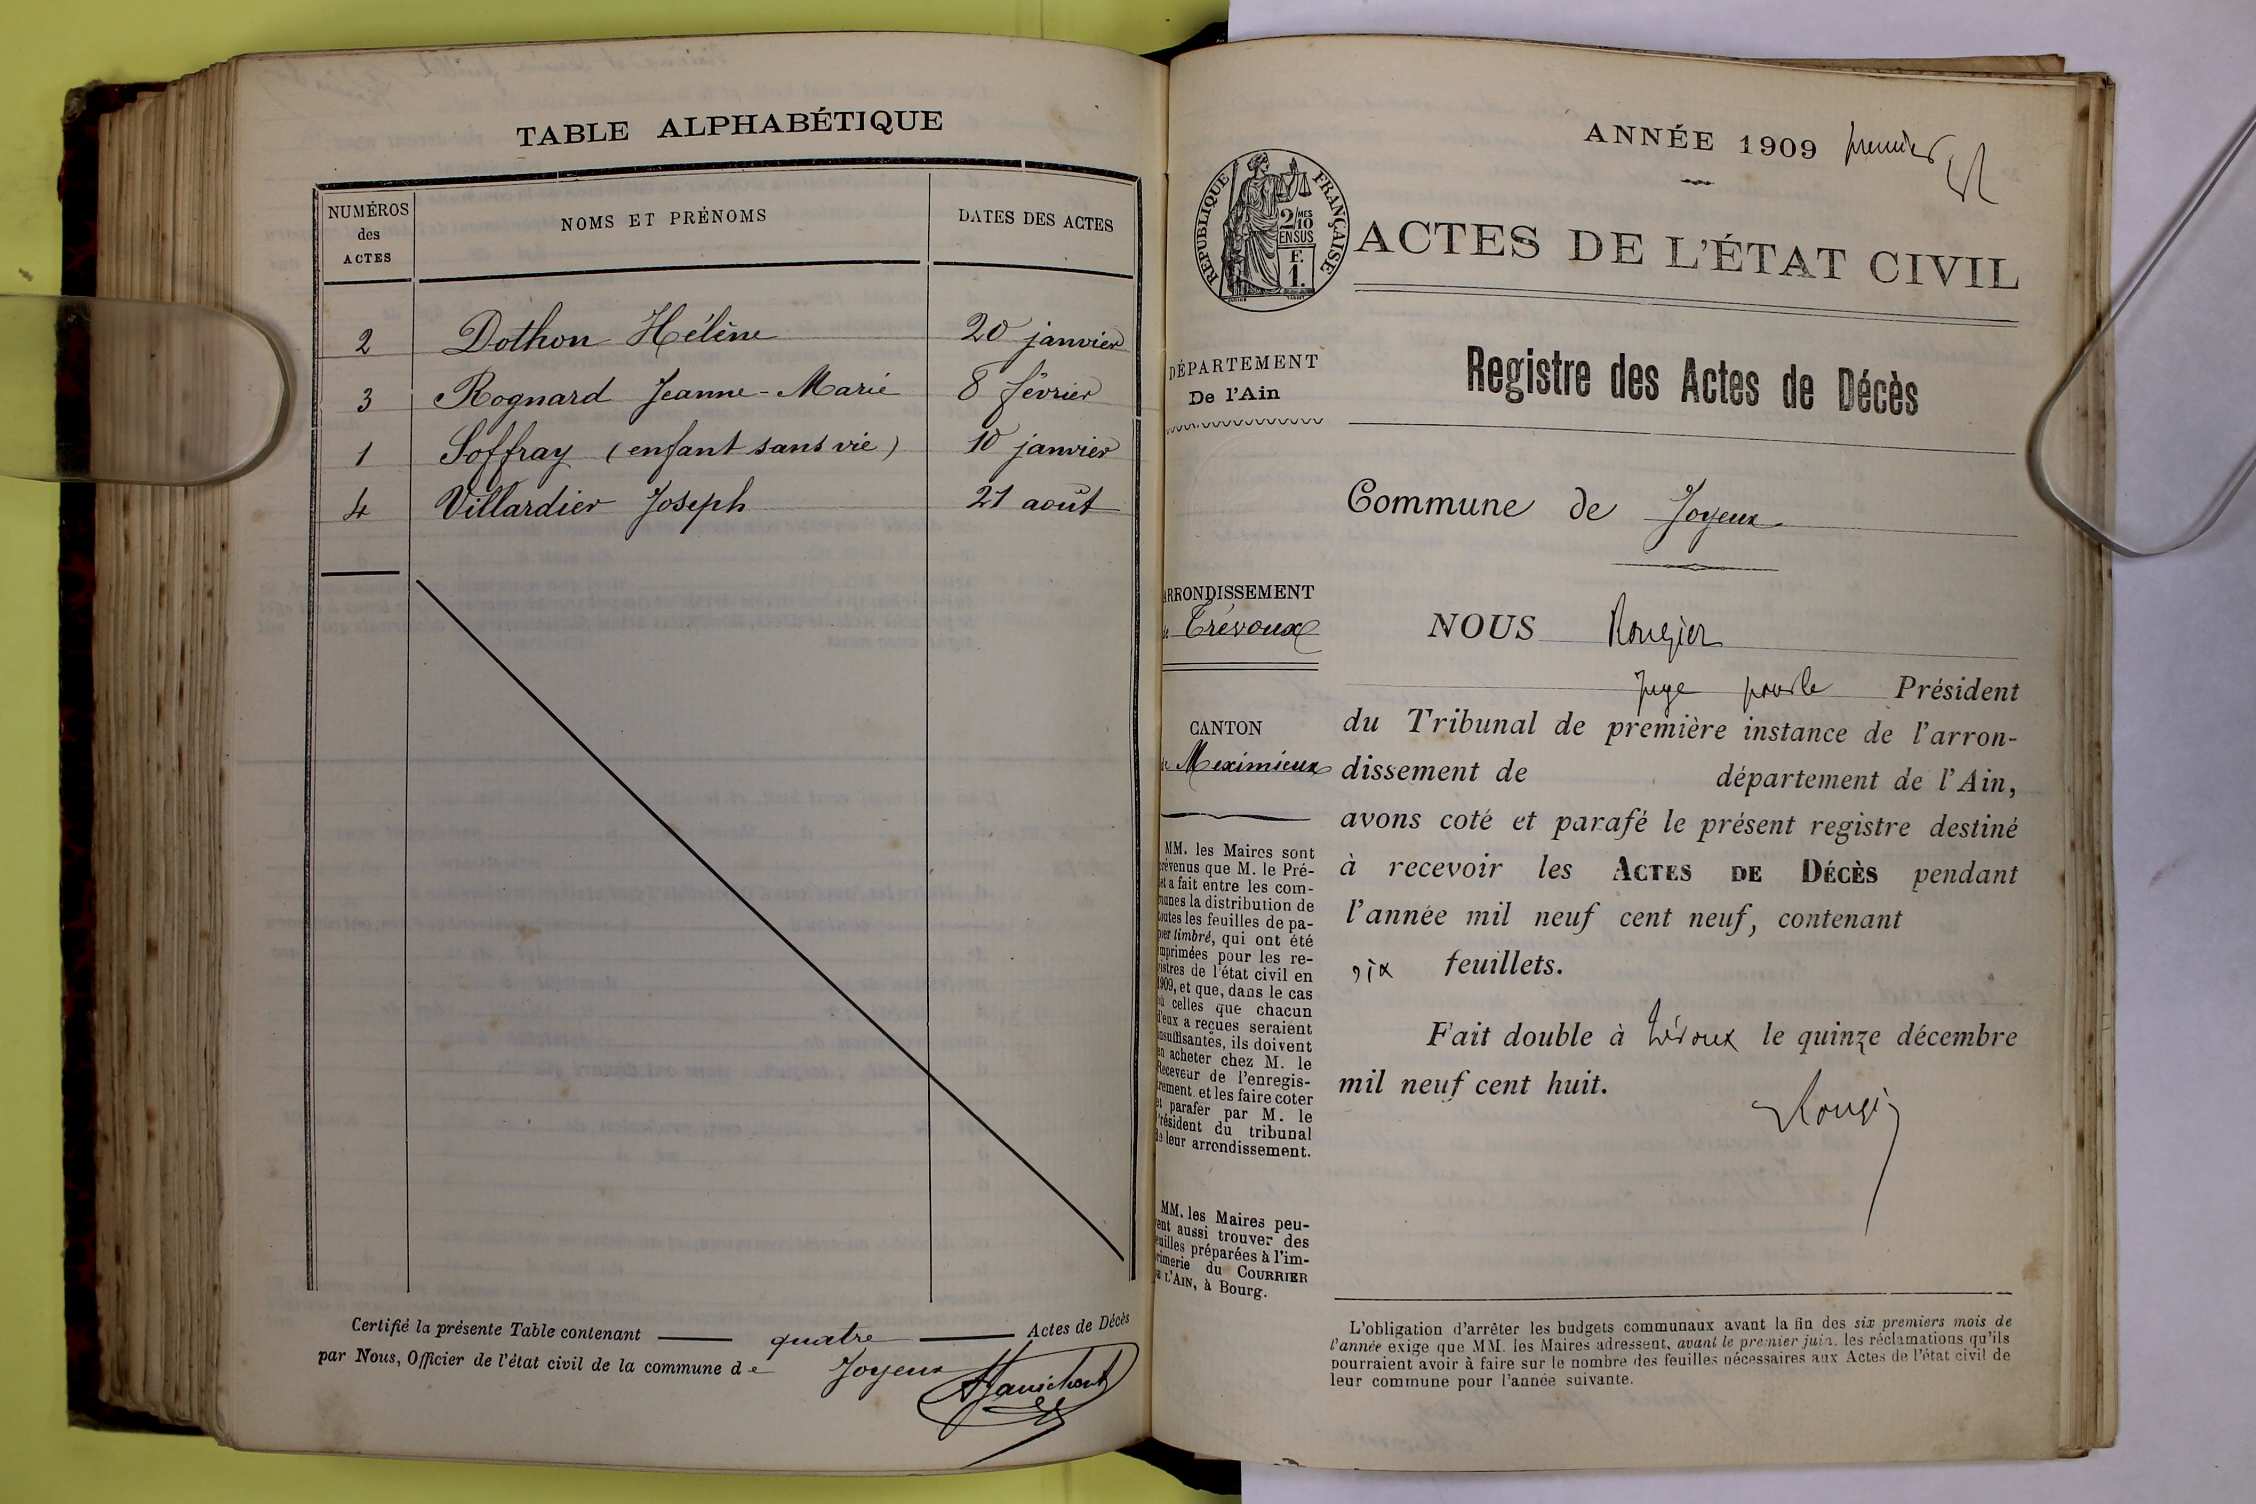 TABLE ALPHABÉTIQUE
NUMÉROS des ACTES
NOMS ET PRÉNOMS
DATES DES ACTES
2 Dothon Hélène 20 janvier
3 Rognard Jeanne-Marie 8 février
1 Soffray (enfant sans vie) 10 janvier
4 Villardier Joseph 21 août
Certifié la présente Table contenant quatre Actes de Décès
par Nous, Officier de l'état civil de la commune de Joyeux
ANNÉE 1909 premier
RÉPUBLIQUE FRANÇAISE
2/10 MES
EN SUS
F.
1.
ACTES DE L'ÉTAT CIVIL
Registre des Actes de Décès
DÉPARTEMENT
De l'Ain
Commune de Joyeux
ARRONDISSEMENT
de Trévoux
CANTON
de Meximieux
MM. les Maires sont
prévenus que M. le Pré-
fet a fait entre les com-
munes la distribution de
toutes les feuilles de pa-
pier timbré, qui ont été
imprimées pour les re-
gistres de l'état civil en
1909, et que, dans le cas
où celles que chacun
d'eux a reçues seraient
insuffisantes, ils doivent
en acheter chez M. le
Receveur de l'enregis-
trement et les faire coter
et parafer par M. le
Président du tribunal
de leur arrondissement.
MM. les Maires peu-
vent aussi trouver des
feuilles préparées à l'im-
primerie du COURRIER
DE L'AIN, à Bourg.
NOUS Rougier
Juge pour le Président
du Tribunal de première instance de l'arron-
dissement de département de l'Ain,
avons coté et parafé le présent registre destiné
à recevoir les ACTES DE DÉCÈS pendant
l'année mil neuf cent neuf, contenant
six feuillets.
Fait double à Trévoux le quinze décembre
mil neuf cent huit.
Rougier
L'obligation d'arrêter les budgets communaux avant la fin des six premiers mois de
l'année exige que MM. les Maires adressent, avant le premier juin, les réclamations qu'ils
pourraient avoir à faire sur le nombre des feuilles nécessaires aux Actes de l'état civil de
leur commune pour l'année suivante.